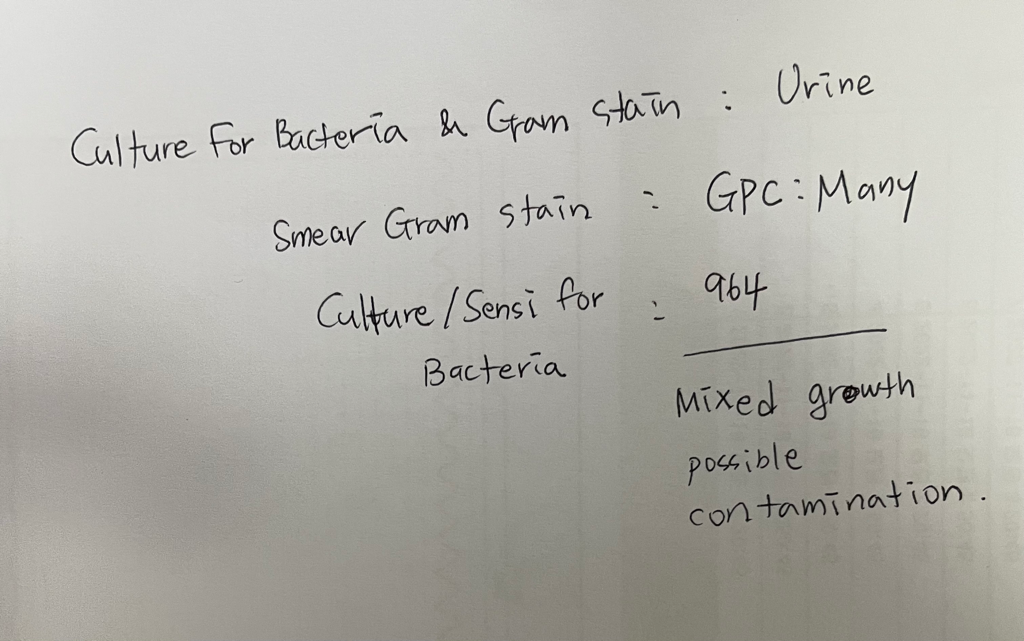 Culture For Bacteria & Gram stain : Urine
Smear Gram stain : GPC : Many
Culture / Sensi for : 964
Bacteria
Mixed growth
possible
contamination.